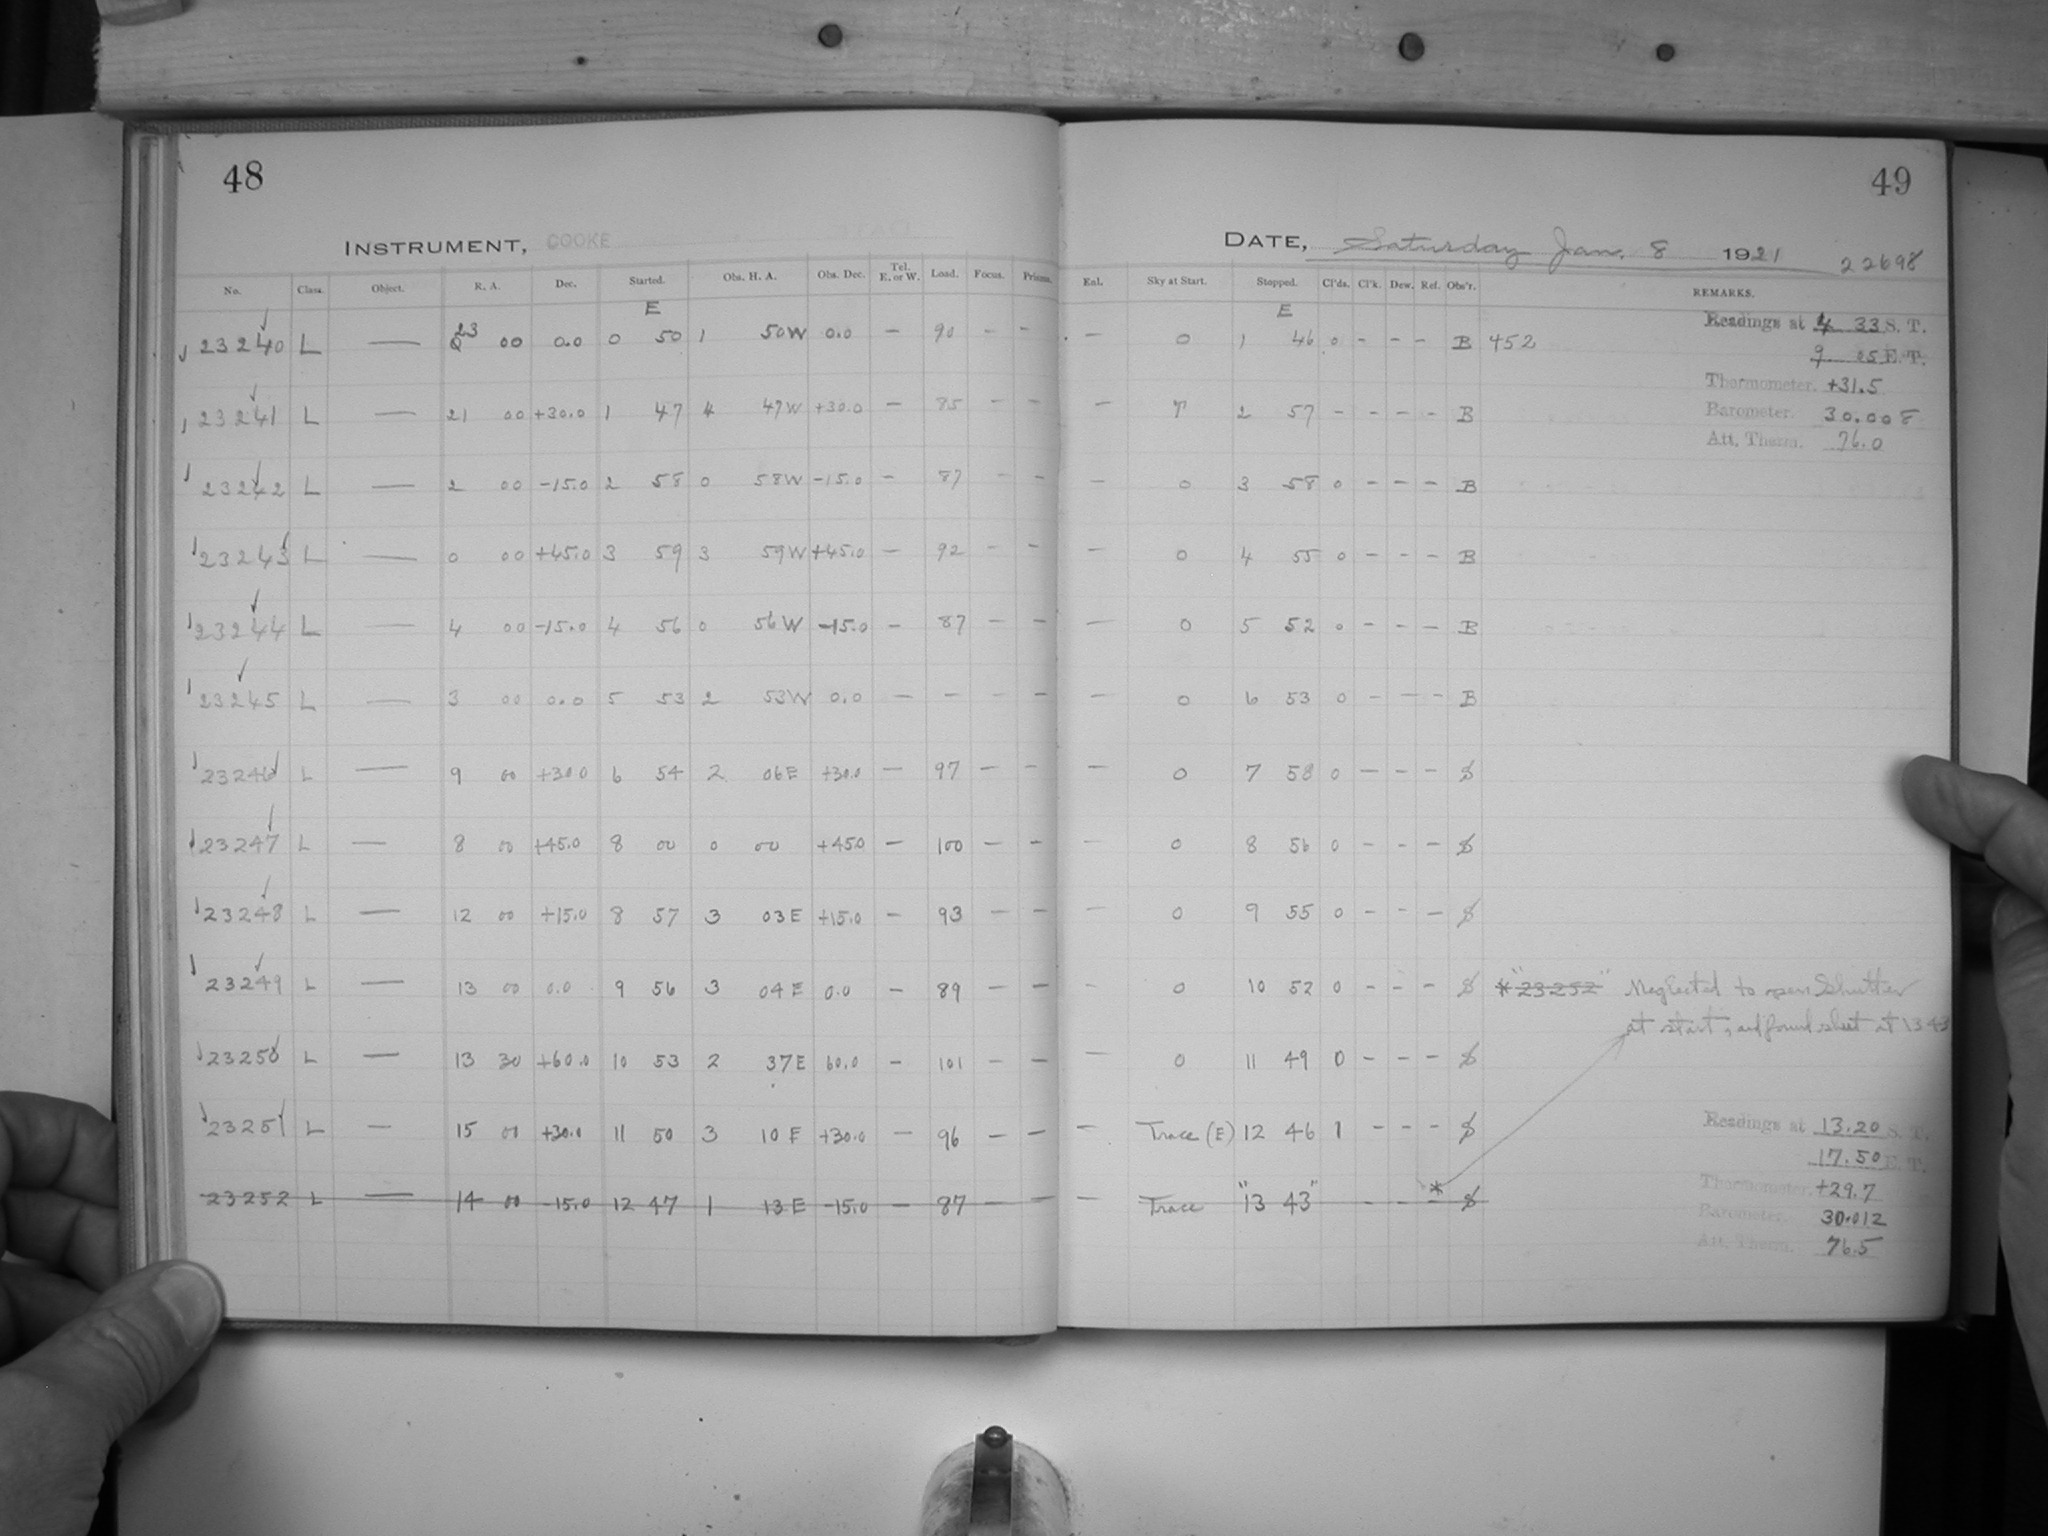 48
49
INSTRUMENT, COOKE
DATE, Saturday Jan. 8 1921 22698
No. Class. Object. R. A. Dec. Started. Obs. H. A. Obs. Dec. Tel. E. or W. Load. Focus. Prisms. Enl. Sky at Start. Stopped. Cl'ds. Cl'k. Dew. Ref. Obs'r. REMARKS.
E E
23240 L — 23 00 0.0 0 50 1 50W 0.0 — 90 - - - 0 1 46 0 - - - B 452
Readings at 4 33 S. T.
9 05 E. T.
Thermometer. +31.5
Barometer. 30.008
Att. Therm. 76.0
23241 L — 21 00 +30.0 1 47 4 47W +30.0 — 85 - - — T 2 57 - - - - B
23242 L — 2 00 -15.0 2 58 0 58W -15.0 - 87 - - — 0 3 58 0 - - - B
23243 L — 0 00 +45.0 3 59 3 59W +45.0 — 92 - - — 0 4 55 0 - - - B
23244 L — 4 00 -15.0 4 56 0 56W -15.0 - 87 - - — 0 5 52 0 - - - B
23245 L — 3 00 0.0 5 53 2 53W 0.0 — - - - — 0 6 53 0 - - - B
23246 L — 9 00 +30.0 6 54 2 06E +30.0 — 97 - - — 0 7 58 0 - - - $
23247 L — 8 00 +45.0 8 00 0 00 +45.0 — 100 - - — 0 8 56 0 - - - $
23248 L — 12 00 +15.0 8 57 3 03E +15.0 - 93 - - — 0 9 55 0 - - - $
23249 L — 13 00 0.0 9 56 3 04E 0.0 - 89 - - - 0 10 52 0 - - - $ * "23252" Neglected to open Shutter
at start, and found shut at 13 43
23250 L — 13 30 +60.0 10 53 2 37E 60.0 - 101 - - — 0 11 49 0 - - - $
23251 L — 15 00 +30.0 11 50 3 10E +30.0 — 96 - - — Trace (E) 12 46 1 - - - $
Readings at 13.20 S. T.
17.50 E. T.
Thermometer. +29.7
Barometer. 30.012
Att. Therm. 76.5
23252 L — 14 00 -15.0 12 47 1 13E -15.0 - 87 - - — Trace "13 43" - - - * $